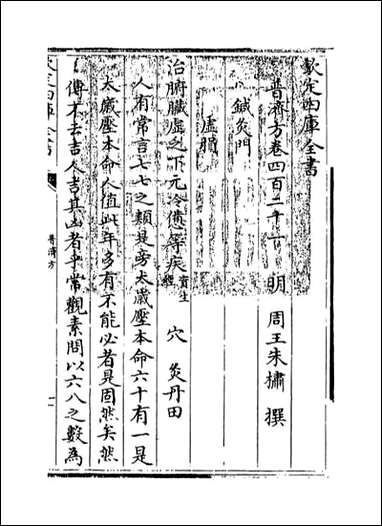 欽定四庫全書
普濟方卷四百二十一 明 周王朱橚 撰
鍼灸門
虛損
治腑臟虛乏下元冷憊等疾資生經 穴 灸丹田
人有常言七七之類是旁太歲壓本命六十有一是
太歲壓本命人值此年多有不能必者是固然矣然
傳不云吉人吉其凶者乎常觀素問以六八之數為
普濟方
一